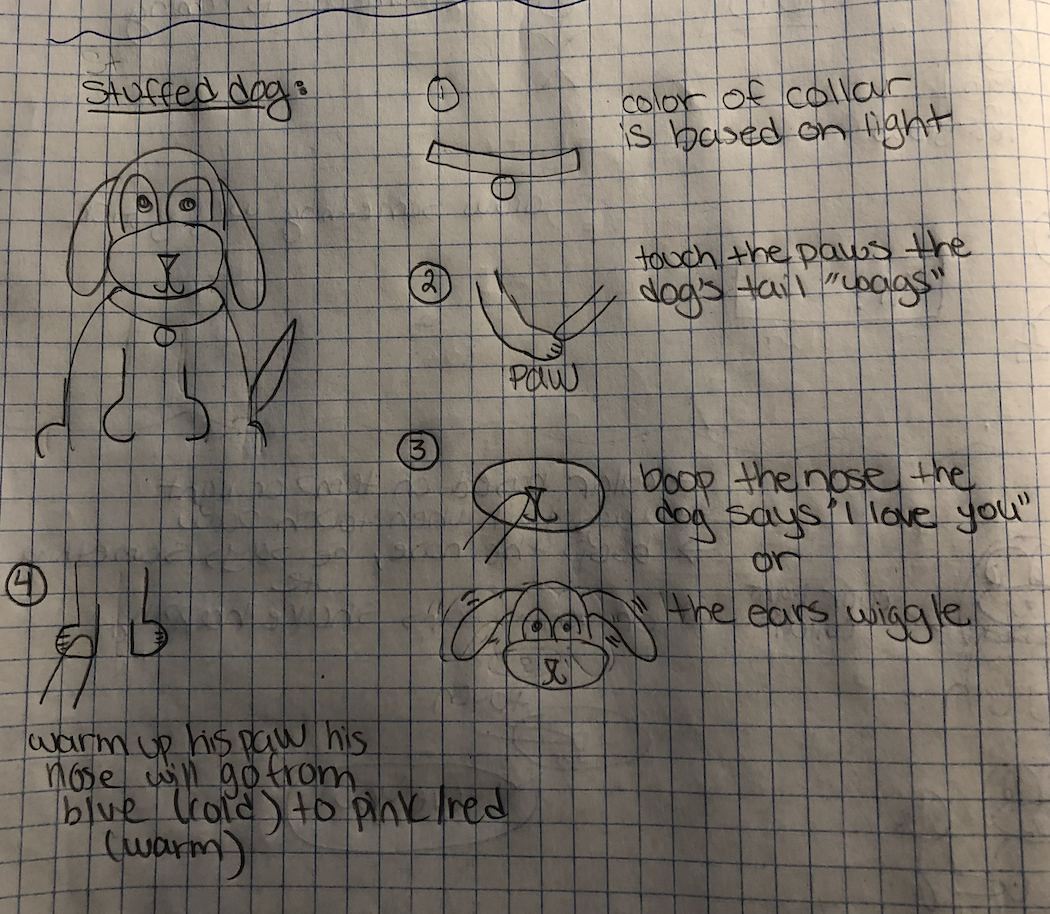 stuffed dog:
①
color of collar
is based on light
②
touch the paws the
dog's tail "wags"
paw
③
boop the nose the
dog says "I love you"
or
the ears wiggle
④
warm up his paw his
nose will go from
blue (cold) to pink/red
(warm)